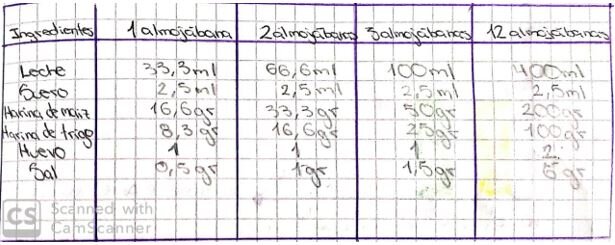 Ingredientes 1 almojábana 2 almojábanas 3 almojábanas 12 almojábanas
Leche 33,3ml 66,6ml 100ml 400ml
Suero 2,5ml 2,5ml 2,5ml 2,5ml
Harina de maiz 16,6gr 33,3gr 50gr 200gr
Harina de trigo 8,3gr 16,6gr 25gr 100gr
Huevo 1 1 1 2
Sal 0,5gr 1gr 1,5gr 6gr
CS Scanned with
CamScanner